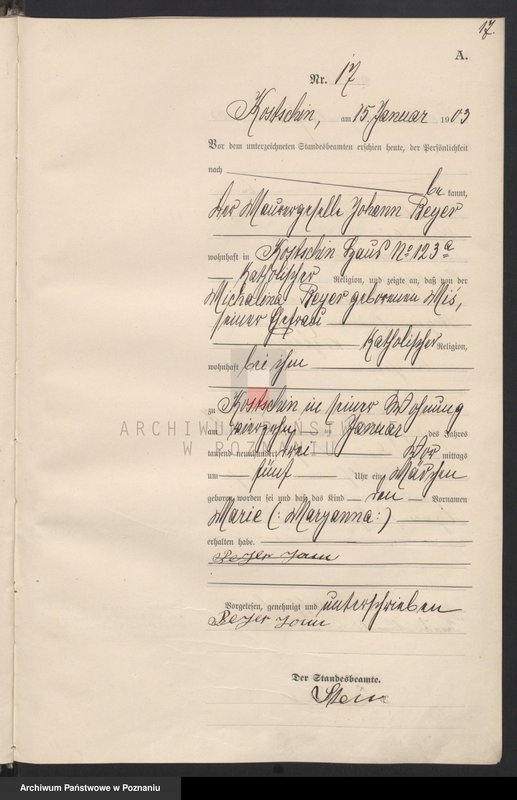 17.
A.
Nr. 17
Kostschin, am 15. Januar 1903
Vor dem unterzeichneten Standesbeamten erschien heute, der Persönlichkeit
nach bekannt,
der Maurergeselle Johann Beyer
wohnhaft in Kostschin Haus No 123a
katholischer Religion, und zeigte an, daß von der
Michalina Beyer geborenen Mis,
seiner Ehefrau
katholischer Religion,
wohnhaft bei ihm
zu Kostschin in seiner Wohnung
am vierzehn ten Januar des Jahres
tausend neunhundert drei Vor mittags
um fünf Uhr ein Mädchen
geboren worden sei und daß das Kind den Vornamen
Marie (: Maryanna :)
erhalten habe.
Vorgelesen, genehmigt und unterschrieben
Der Standesbeamte.
Stein
ARCHIWUM PAŃSTWOWE
W POZNANIU
Archiwum Państwowe w Poznaniu